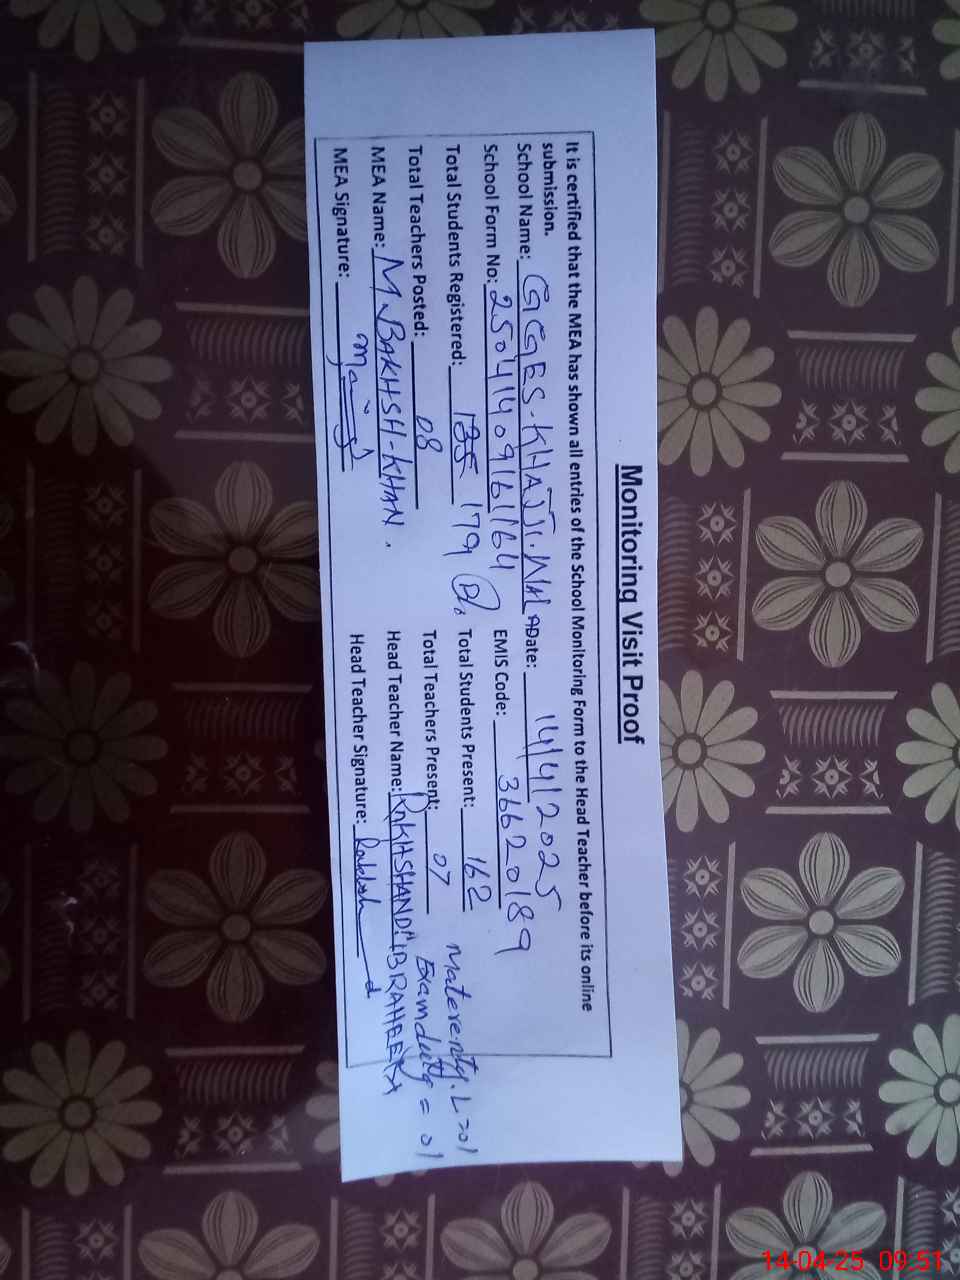 Monitoring Visit Proof
It is certified that the MEA has shown all entries of the School Monitoring Form to the Head Teacher before its online
submission.
School Name: GGES. KHAJI. WALA Date: 14/4/2025
School Form No: 25041409161164 EMIS Code: 36620189
Total Students Registered: 135 179 Total Students Present: 162 Materenty. L = 01
Total Teachers Posted: 08 Total Teachers Present: 07 Examduty = 01
MEA Name: M. BAKHSH - KHAN. Head Teacher Name: RAKHSHANDA IBRAHEEM
MEA Signature: Head Teacher Signature:
14-04-25 09:51